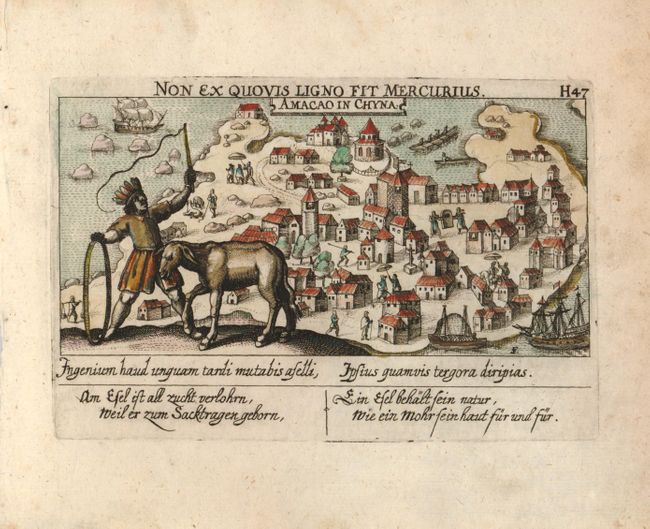 NON EX QUOVIS LIGNO FIT MERCURIUS. H47
AMACAO IN CHYNA.
Ingenium haud unquam tardi mutabis aselli, Ipsius quamvis tergora diripias.
Am Esel ist all zucht verlohrn,
Weil er zum Sacktragen geborn,
Ein Esel behält sein natur,
Wie ein Mohr sein haut für und für.